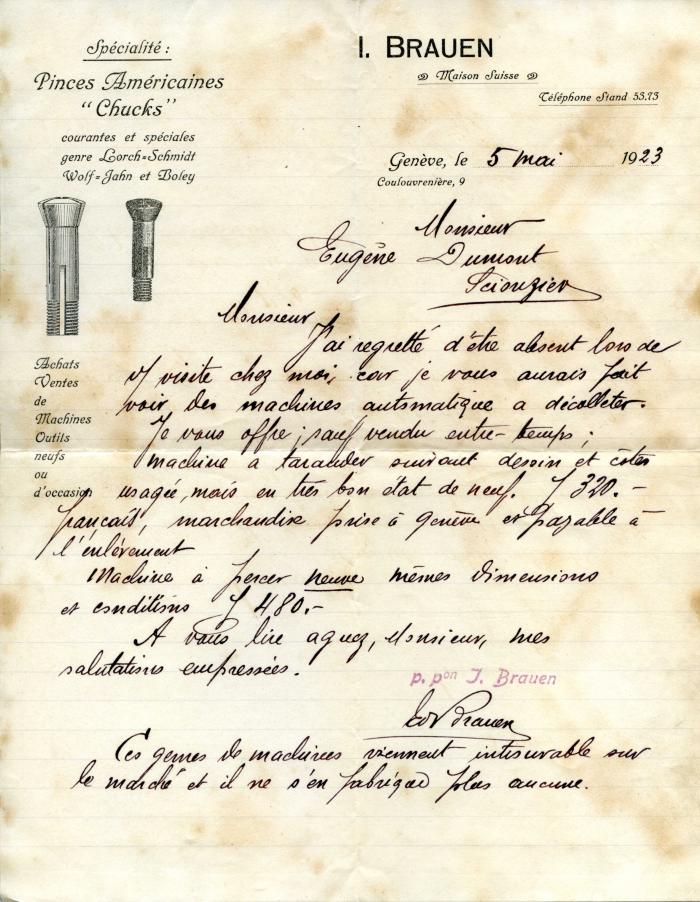 Spécialité :
Pinces Américaines
“Chucks”
courantes et spéciales
genre Lorch=Schmidt
Wolf=Jahn et Boley
I. BRAUEN
Maison Suisse
Téléphone Stand 53.73
Genève, le 5 mai 1923
Coulouvrenière, 9
Monsieur
Eugène Dumont
Scionzier
Achats
Ventes
de
Machines
Outils
neufs
ou
d'occasion
Monsieur
J'ai regretté d'être absent lors de
visite chez moi, car je vous aurais fait
voir des machines automatique a décolleter.
Je vous offre ; sauf vendu entre-temps ;
machine a tarauder suivant dessin et côtes
usagée, mais en très bon état de neuf. f 320.-
français, marchandise prise à Genève et payable à
l'enlèvement
Machine à percer neuve mêmes dimensions
et conditions f 480.-
A vous lire agréez, Monsieur, mes
salutations empressées.
p. pon J. Brauen
Brauen
Ces genres de machines viennent introuvable sur
le marché et il ne s'en fabrique plus aucune.